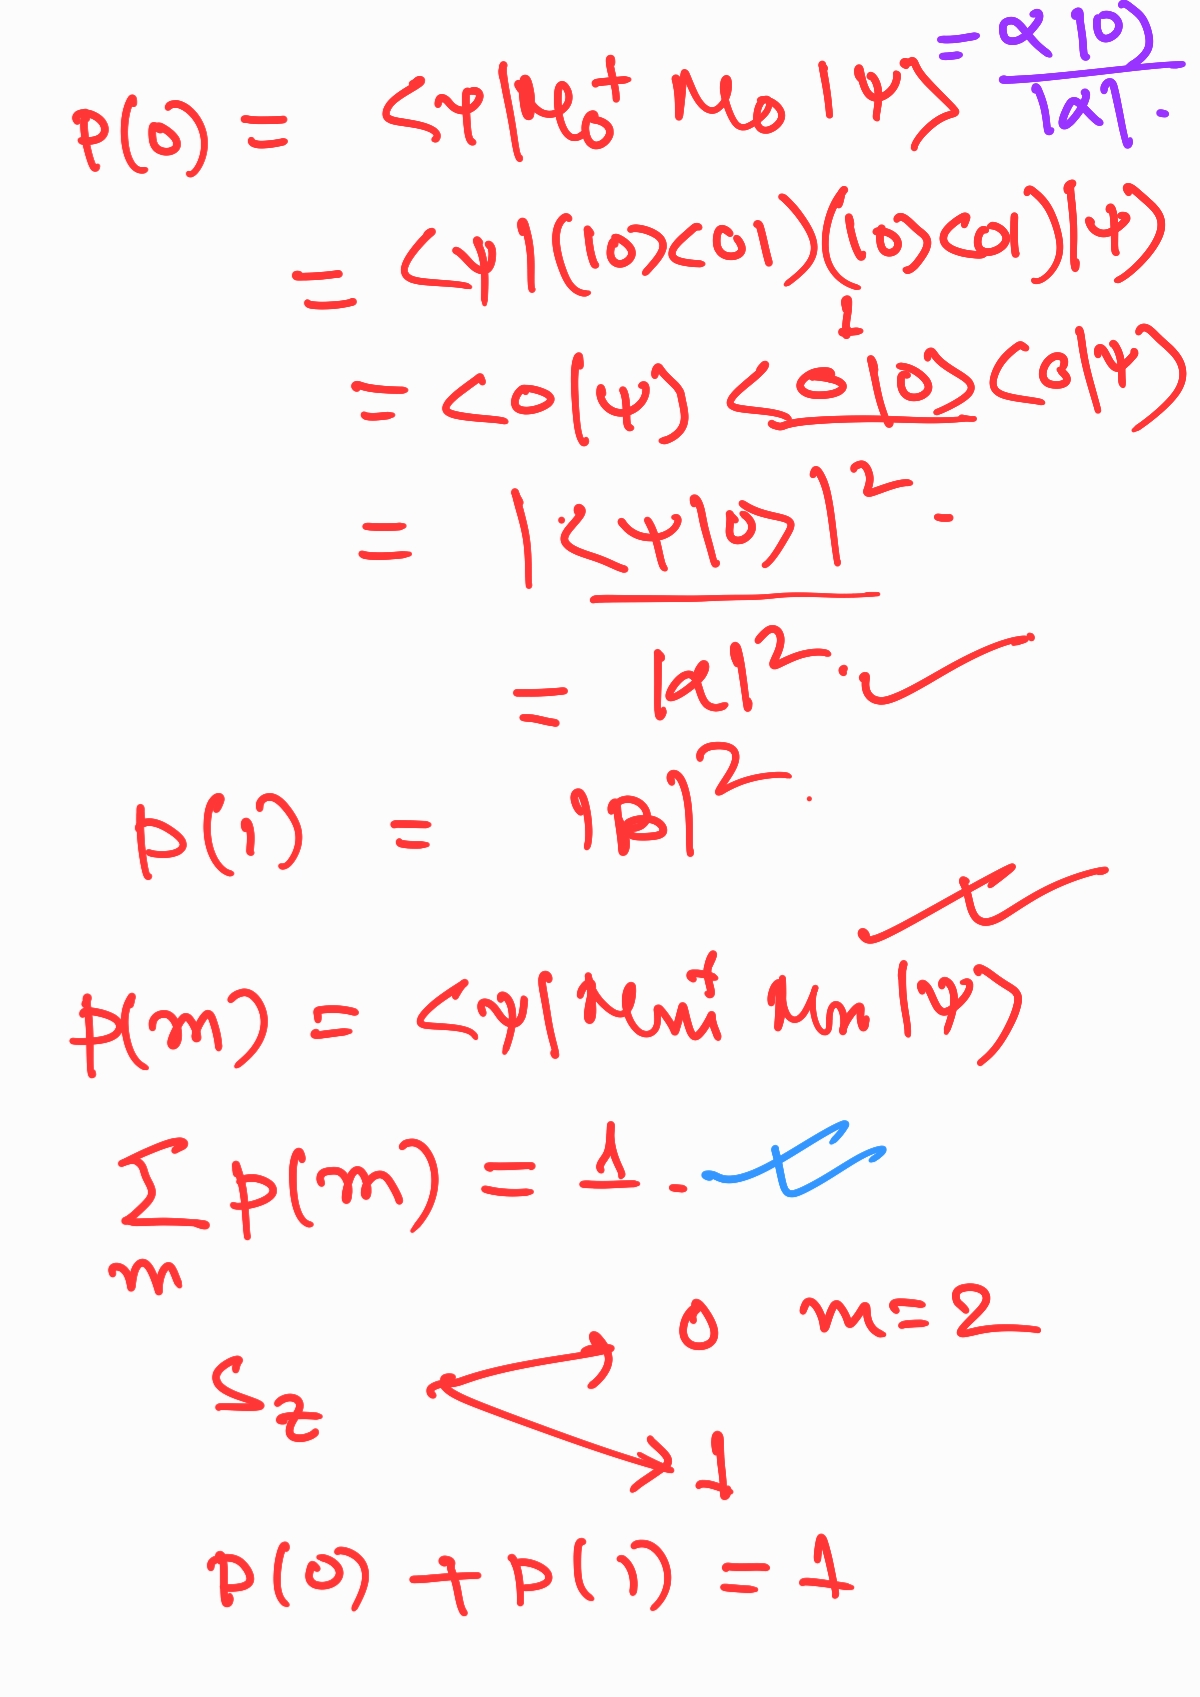 = α|0⟩ / |α| .
p(0) = ⟨ψ|M₀† M₀ |ψ⟩
= ⟨ψ|(|0⟩⟨0|)(|0⟩⟨0|)|ψ⟩
1
= ⟨0|ψ⟩ ⟨0|0⟩ ⟨0|ψ⟩
= |⟨ψ|0⟩|² .
= |α|² .
p(1) = |β|² .
p(m) = ⟨ψ| Mₘ† Mₘ |ψ⟩
∑ p(m) = 1 .
m
0 m = 2
S_z
1
p(0) + p(1) = 1